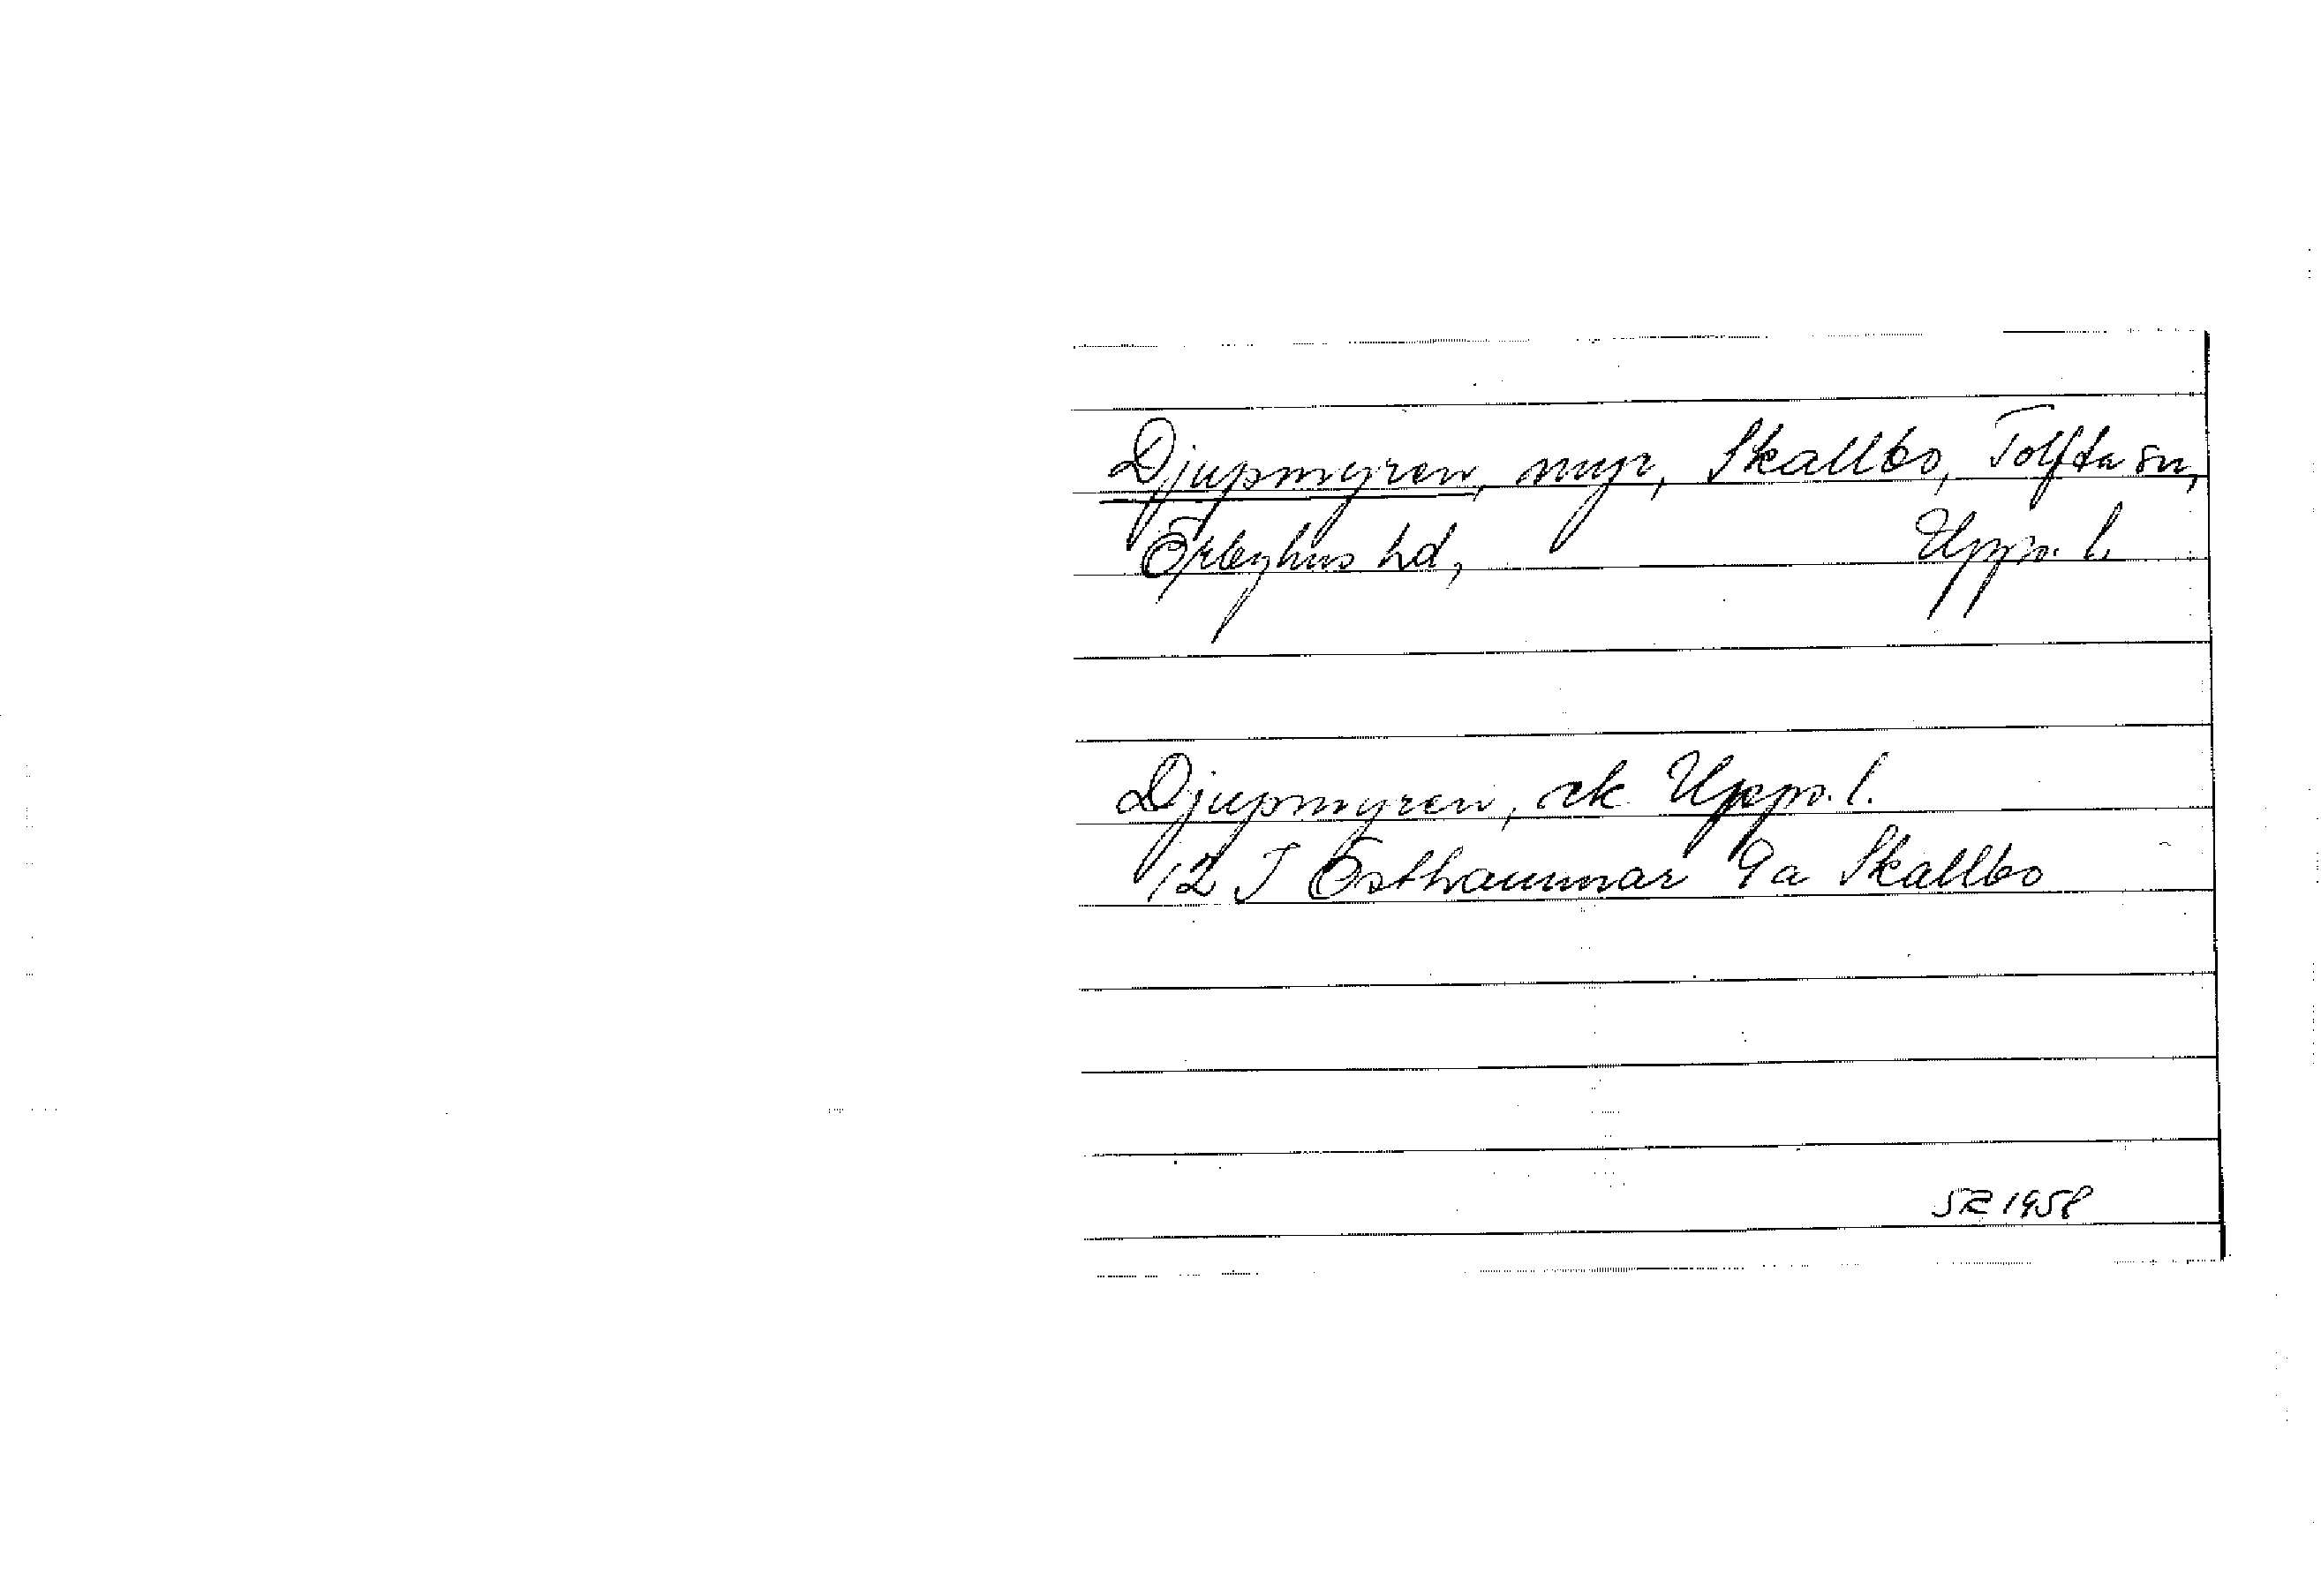 Djupmyren, myr, Skallbo, Tolfta sn,
Örbyhus hd, Upps. l.
Djupmyren, ek Upps. l.
12 I Östhammar 9a Skallbo
SR 1958